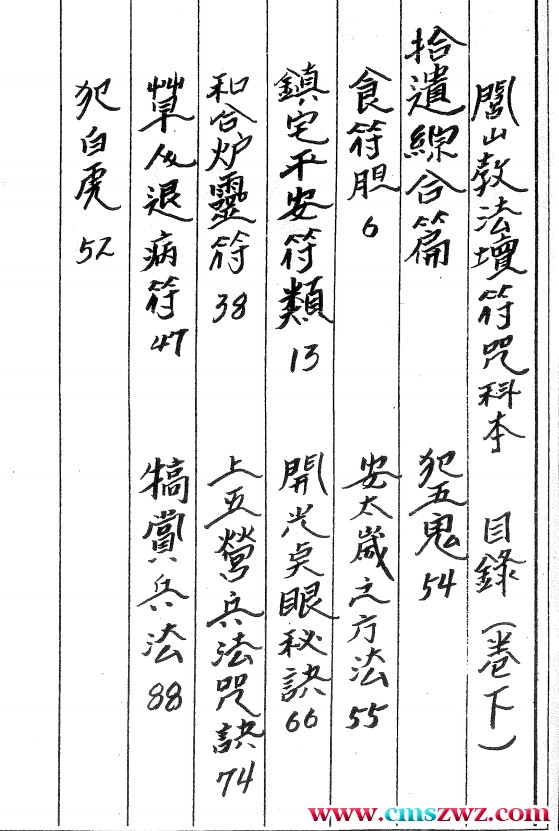 閭山教法壇符咒科本 目錄(卷下)
拾遺綜合篇
食符胆 6
鎮宅平安符類 13
和合炉靈符 38
草人退病符 47
犯白虎 52
犯五鬼 54
安太歲之方法 55
開光奌眼秘訣 66
上五營兵法咒訣 74
犒賞兵法 88
www.cmszwz.com